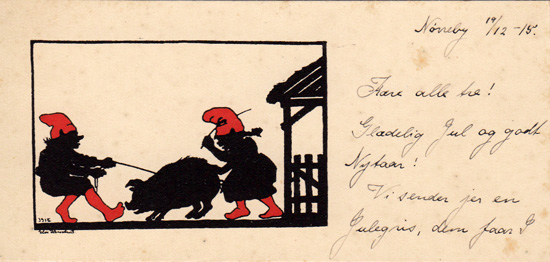 Nørreby 19/12 - 15.
Kære alle tre!
Glædelig Jul og godt
Nytaar!
Vi sender jer en
Julegris, dem faar I
1915